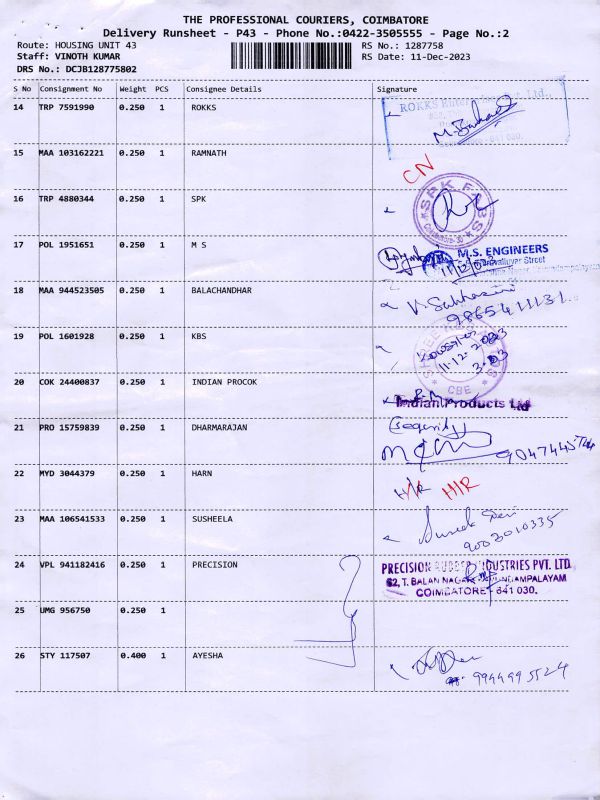 THE PROFESSIONAL COURIERS, COIMBATORE
Delivery Runsheet - P43 - Phone No.:0422-3505555 - Page No.:2
Route: HOUSING UNIT 43 RS No.: 1287758
Staff: VINOTH KUMAR RS Date: 11-Dec-2023
DRS No.: DCJB128775802
S No Consignment No Weight PCS Consignee Details Signature
14 TRP 7591990 0.250 1 ROKKS
ROKKS Ltd.,
15 MAA 103162221 0.250 1 RAMNATH
CN
16 TRP 4880344 0.250 1 SPK
SPK FABS
17 POL 1951651 0.250 1 M S
M.S. ENGINEERS
Street
18 MAA 944523505 0.250 1 BALACHANDHAR
9865411131
19 POL 1601928 0.250 1 KBS
11-12-2023
3.03
CBE
20 COK 24400837 0.250 1 INDIAN PROCOK
Indian Products Ltd
21 PRO 15759839 0.250 1 DHARMARAJAN
22 MYD 3044379 0.250 1 HARN
H/R H/R
23 MAA 106541533 0.250 1 SUSHEELA
9003010335
24 VPL 941182416 0.250 1 PRECISION
PRECISION INDUSTRIES PVT. LTD.
62, T. BALAN NAGAR
COIMBATORE - 641 030.
25 UMG 956750 0.250 1
26 STY 117507 0.400 1 AYESHA
9944995524